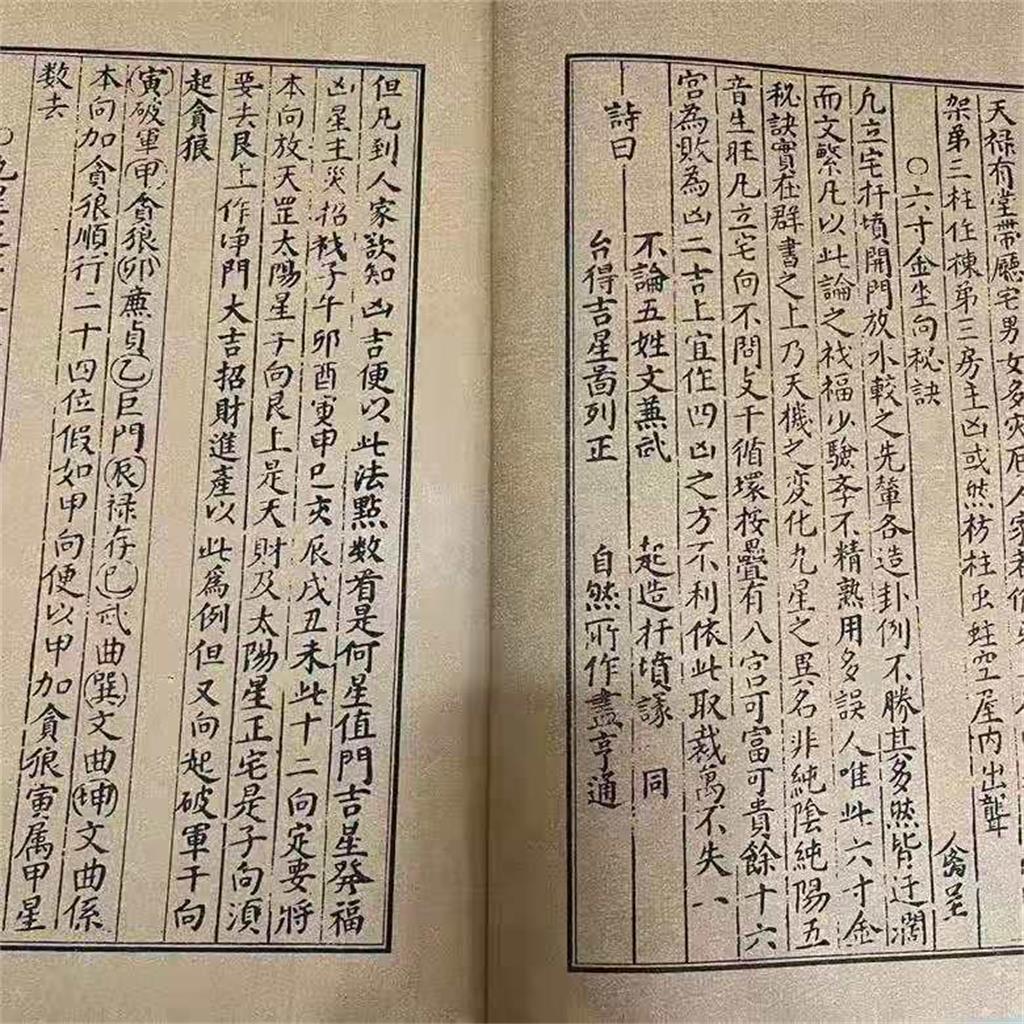 天禄有堂帶廳宅男女多灾厄人家若作
架第三柱住棟第三房主凶或然枋柱虫蛀空屋内出聾
〇六寸金坐向秘訣
凢立宅扦墳開門放水較之先輩各造卦例不勝其多然皆迂濶
而文繁凡以此論之祸福少驗李不精熟用多誤人唯此六寸金
秘訣實在群書之上乃天機之変化九星之異名非純陰純陽五
音生旺凡立宅向不問支干循環挨疊有八宫可富可貴餘十六
宫為敗為凶二吉上宜作四凶之方不利依此取裁萬不失八
詩曰
不論五姓文兼武 起造扦墳 同
台得吉星啚列正 自然所作盡亨通
但凡到人家欲知凶吉便以此法點数看是何星值門吉星發福
凶星主災招祸子午卯酉寅申巳亥辰戌丑未此十二向定要將
本向放天罡太陽星子向艮上是天財及太陽星正宅是子向湏
要去艮上作净門大吉招財進產以此爲例但又向起破軍干向
起貪狼
寅破軍甲貪狼卯廉貞乙巨門辰禄存巳武曲巽文曲坤文曲係
本向加貪狼順行二十四位假如甲向便以甲加貪狼寅属甲星
数去